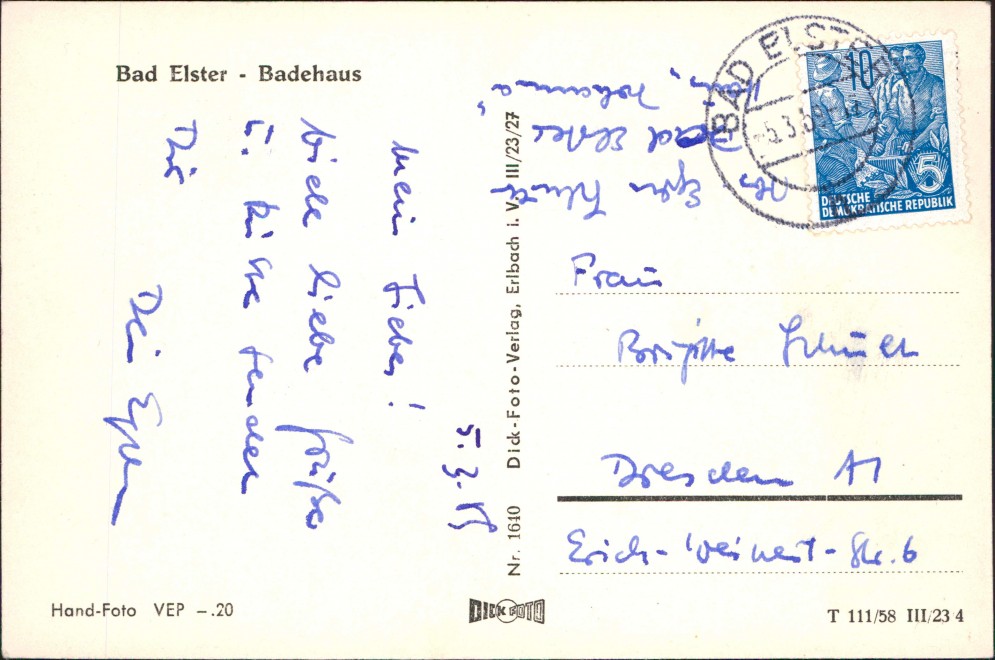 Bad Elster - Badehaus
5.3.59
Mein Liebes!
Viele liebe Grüße
u. Küsse sendet
Dir
Dein Egon
Abs. Egon
Bad Elster
Haus „Johanna“
BAD ELSTER
5.3.59
10
5
DEUTSCHE
DEMOKRATISCHE REPUBLIK
Frau
Brigitte
Dresden A1
Erich-Weinert-Str. 6
Nr. 1610 Dick-Foto-Verlag, Erlbach i. V. III/23/27
Hand-Foto VEP –.20
DICK FOTO
T 111/58 III/23 4